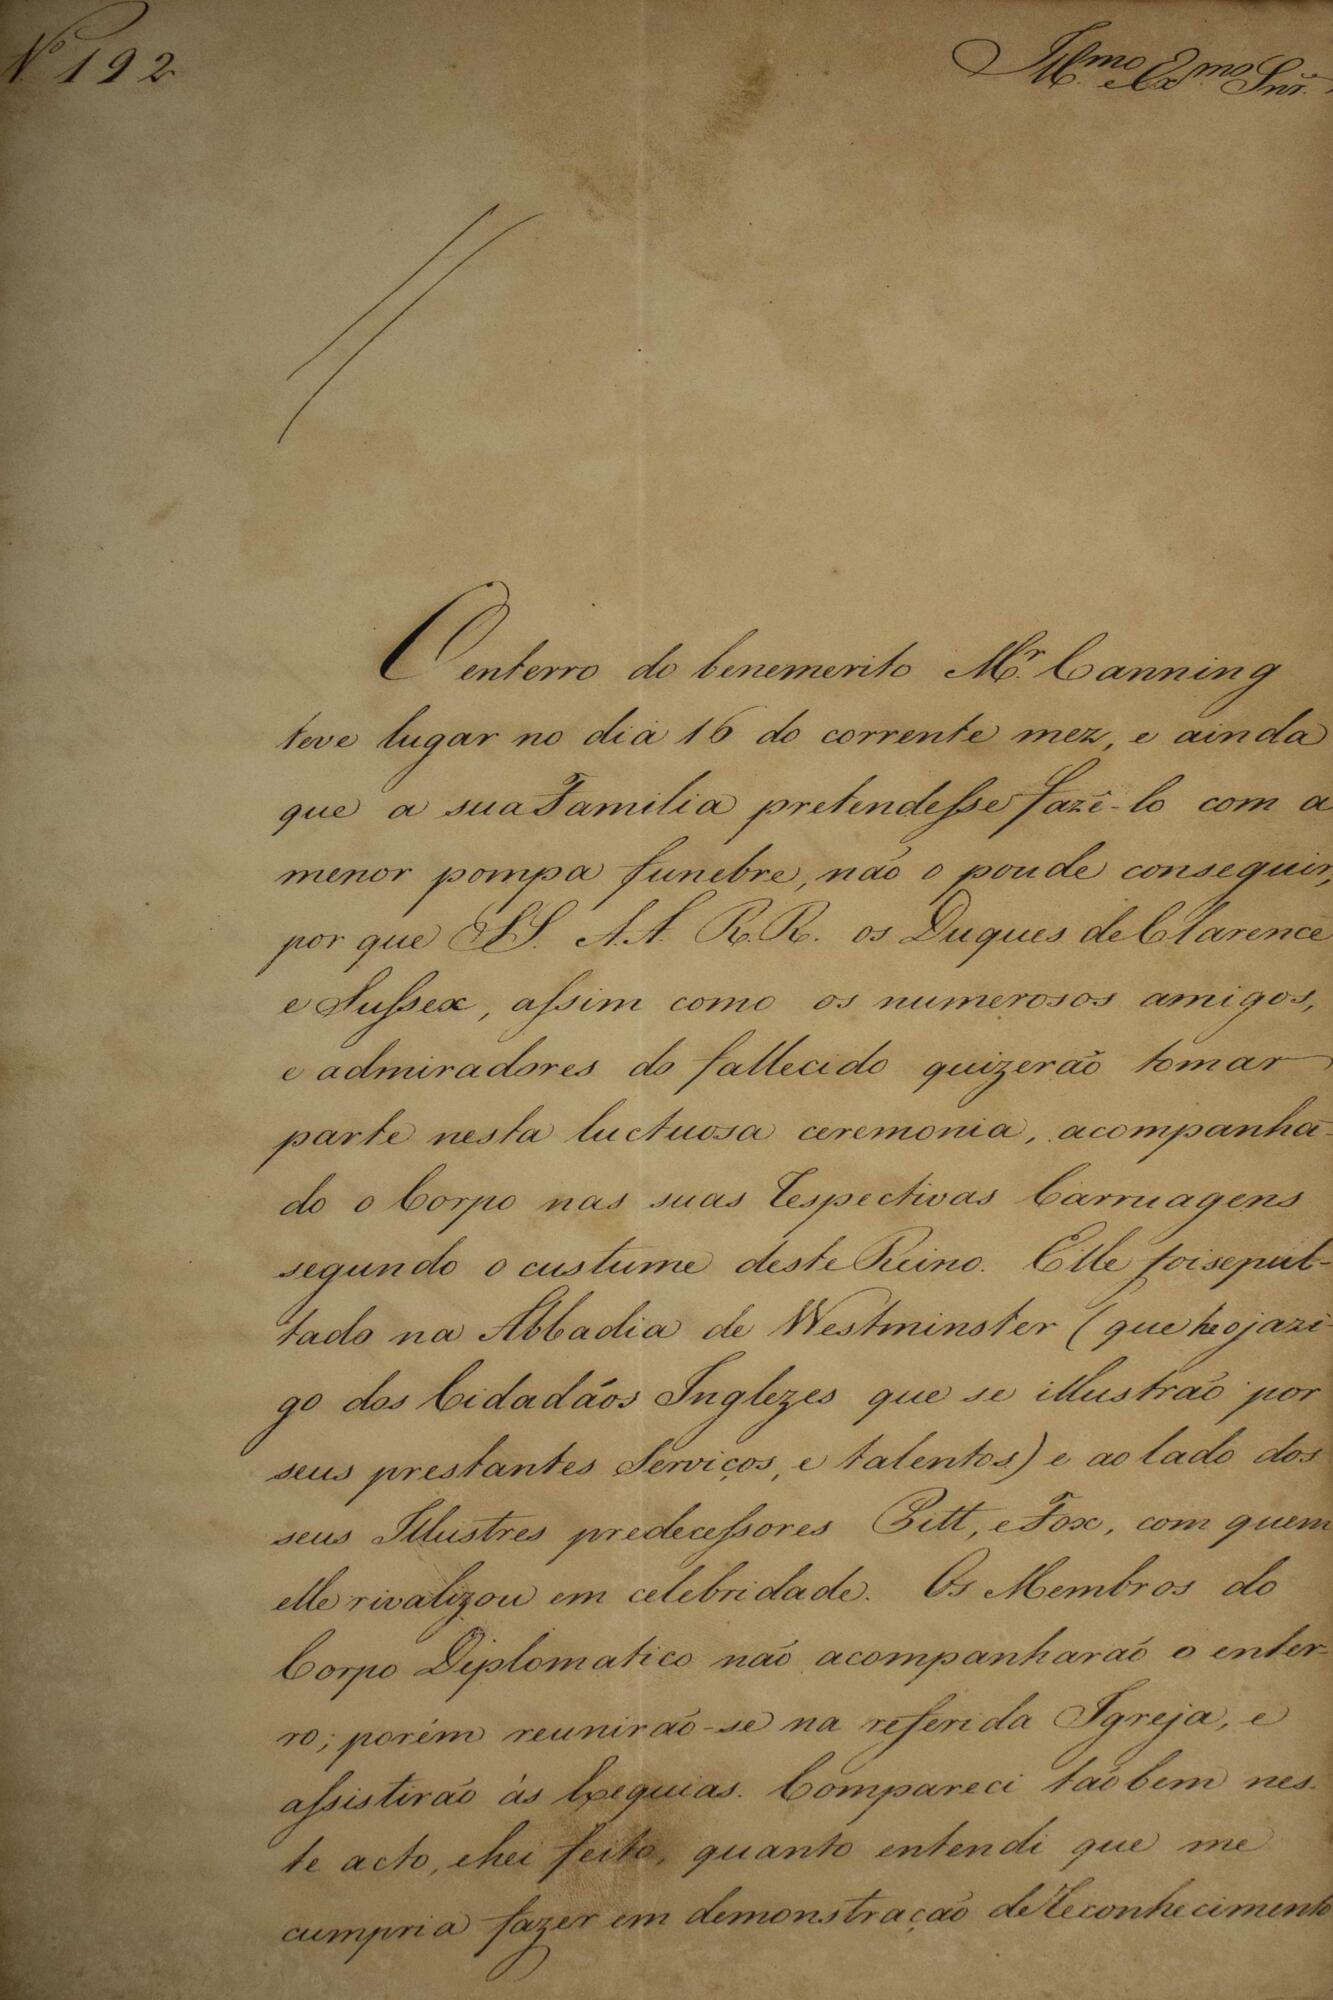 Nº 192
Illmo e Exmo Snr.
O enterro do benemerito Mr. Canning
teve lugar no dia 16 do corrente mez, e ainda
que a sua Familia pretendesse fazê-lo com a
menor pompa funebre, não o poude conseguir,
por que SS. A.A. R.R. os Duques de Clarence
e Sussex, assim como os numerosos amigos,
e admiradores do fallecido quizerão tomar
parte nesta luctuosa ceremonia, acompanha-
do o Corpo nas suas respectivas Carruagens
segundo o custume deste Reino. Elle foi sepul-
tado na Abbadia de Westminster (que he o jazi-
go dos Cidadãos Inglezes que se illustrão por
seus prestantes Serviços, e talentos) e ao lado dos
seus Illustres predecessores Pitt, e Fox, com quem
elle rivalizou em celebridade. Os Membros do
Corpo Diplomatico não acompanharão o enter-
ro; porém reunirão-se na referida Igreja, e
assistirão ás Exequias. Compareci tãobem nes-
te acto, e hei feito, quanto entendi que me
cumpria fazer em demonstração de reconhecimento